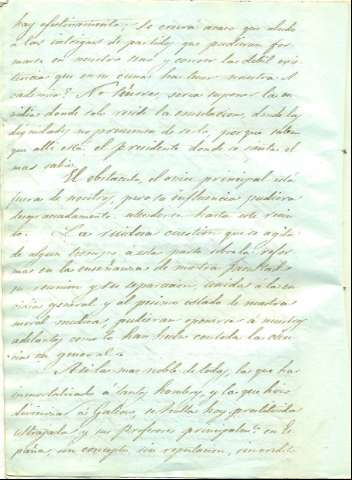 hay efectivamente; se creerá acaso que aludo
á las intrigas de partido, que pudieran for
marse en nuestro seno y corroer la debil exis
tencia que en su cuna ha tenido nuestra A
cademia? No Señores, seria suponer la en
vidia donde solo reside la emulacion, donde la
dignidad no presume de serlo, porque saben
que alli está el presidente donde se sienta el
mas sabio.
El obstáculo, el único principal está
fuera de nosotros, pero su influencia pudiera
desgraciadamente estenderse hasta este recin
to. La ruidosa cuestion que se agita
de algun tiempo á esta parte sobre la refor
ma en la enseñanza de nuestra facultad
su reunion y su separacion, unidas á la cri
sis en general y al pésimo estado de nuestra
moral médica, pudieran oponerse á nuestros
adelantos como lo han hecho contodas las cien
cias en general.
A ella la mas noble de todas, la que ha
inmortalizado á tantos hombres, y la que hizo
divinizar á Galeno, se halla hoy prostituida
ultrajada y sus profesores principalm.te en Es
paña, sin concepto, sin reputacion, sin credito